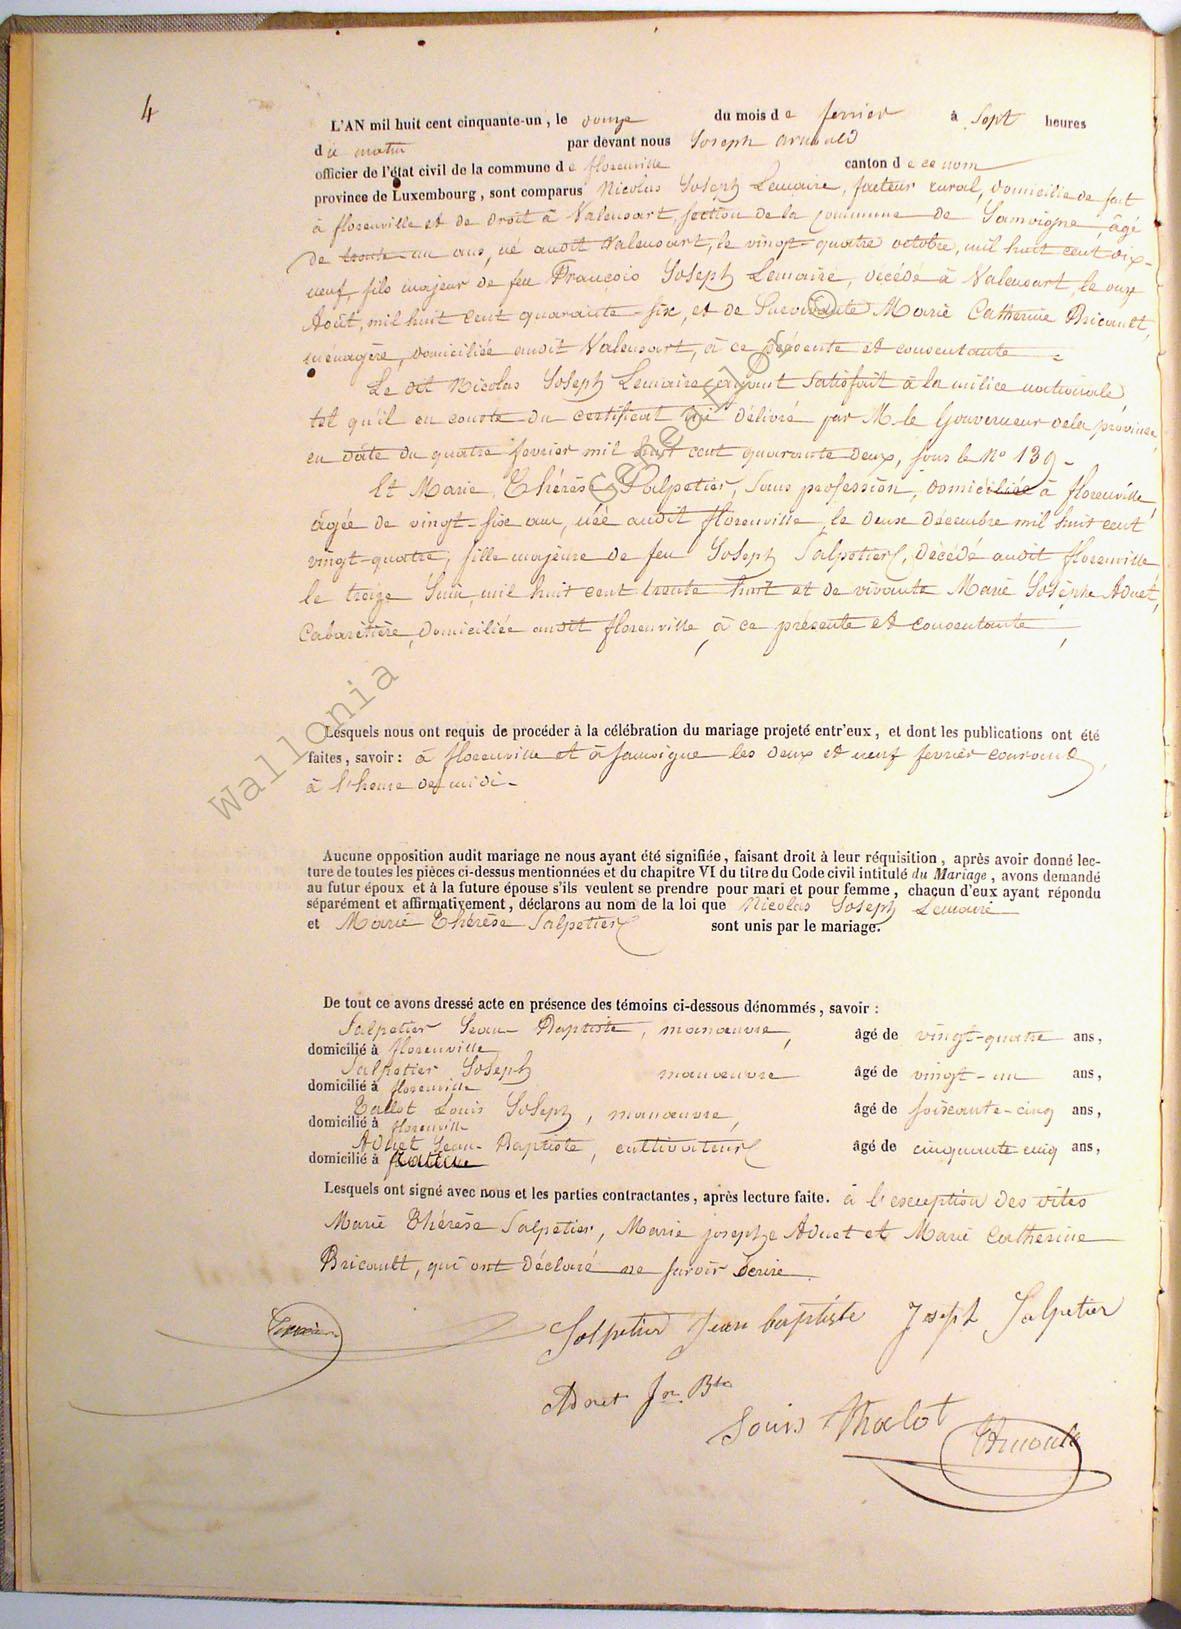 4
L'AN mil huit cent cinquante-un, le douze du mois de fevrier à Sept heures
du matin par devant nous Joseph Arnould
officier de l'état civil de la commune de florenville canton de ce nom
province de Luxembourg, sont comparus Nicolas Joseph Lemaire, facteur rural, domicilié de fait
à florenville et de droit à Valensart, section de la commune de Jamoigne, âgé
de trente-un ans, né audit Valensart, le vingt-quatre octobre, mil huit cent dix-
neuf, fils majeur de feu François Joseph Lemaire, décédé à Valensart, le onze
Août, mil huit cent quarante-six, et de Survivante Marie Catherine Bricault,
ménagère, domiciliée audit Valensart, à ce présente et consentante
Le dit Nicolas Joseph Lemaire ayant satisfait à la milice nationale
tel qu'il en conste du certificat lui délivré par M. le Gouverneur de la province,
en date du quatre fevrier mil huit cent quarante deux, sous le N° 139-
Et Marie Thérèse Salpetier, Sans profession, domiciliée à florenville,
âgée de vingt-six ans, née audit florenville, le deux décembre mil huit cent
vingt-quatre, fille majeure de feu Joseph Salpetier, décédé audit florenville
le treize Juin, mil huit cent trente huit et de vivante Marie Josèphe Adnet,
Cabaretière, domiciliée audit florenville, à ce présente et consentante
Lesquels nous ont requis de procéder à la célébration du mariage projeté entr'eux, et dont les publications ont été
faites, savoir: à florenville et à Jamoigne les deux et neuf fevrier courant,
à l'heure de midi-
Aucune opposition audit mariage ne nous ayant été signifiée, faisant droit à leur réquisition, après avoir donné lec-
ture de toutes les pièces ci-dessus mentionnées et du chapitre VI du titre du Code civil intitulé du Mariage, avons demandé
au futur époux et à la future épouse s'ils veulent se prendre pour mari et pour femme, chacun d'eux ayant répondu
séparément et affirmativement, déclarons au nom de la loi que Nicolas Joseph Lemaire
et Marie Thérèse Salpetier sont unis par le mariage.
De tout ce avons dressé acte en présence des témoins ci-dessous dénommés, savoir:
Salpetier Jean-Baptiste, manœuvre, âgé de vingt-quatre ans,
domicilié à florenville
Salpetier Joseph manœuvre âgé de vingt-un ans,
domicilié à florenville
Tallot Louis Joseph, manœuvre, âgé de soixante-cinq ans,
domicilié à florenville
Adnet Jean-Baptiste, cultivateur âgé de cinquante-cinq ans,
domicilié à
Lesquels ont signé avec nous et les parties contractantes, après lecture faite. à l'exception des dites
Marie Thérèse Salpetier, Marie josephe Adnet et Marie Catherine
Bricault, qui ont déclaré ne savoir écrire
Salpetier Jean baptiste Joseph Salpetier
Adnet Jn. Bte
Louis Thalot
Arnould
Wallonia GeneaFlor